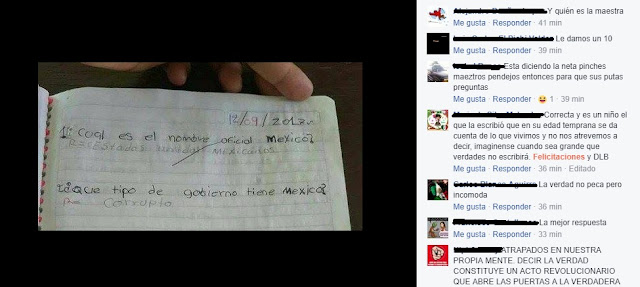 12/09/2017
1¿Cual es el nombre oficial Mexico?
R= Estados Unidos Mexicanos
2¿Que tipo de gobierno tiene Mexico?
R= Corrupto
Y quién es la maestra
Me gusta · Responder · 41 min
Le damos un 10
Me gusta · Responder · 39 min
Esta diciendo la neta pinches
maeztros pendejos entonces para que sus putas
preguntas
Me gusta · Responder · 1 · 39 min
Correcta y es un niño el
que la escribió que en su edad temprana se da
cuenta de lo que vivimos y no nos atrevemos a
decir, imaginense cuando sea grande que
verdades no escribirá. Felicitaciones y DLB
Me gusta · Responder · 36 min · Editado
La verdad no peca pero
incomoda
Me gusta · Responder · 36 min
La mejor respuesta
Me gusta · Responder · 33 min
ATRAPADOS EN NUESTRA
PROPIA MENTE. DECIR LA VERDAD
CONSTITUYE UN ACTO REVOLUCIONARIO
QUE ABRE LAS PUERTAS A LA VERDADERA